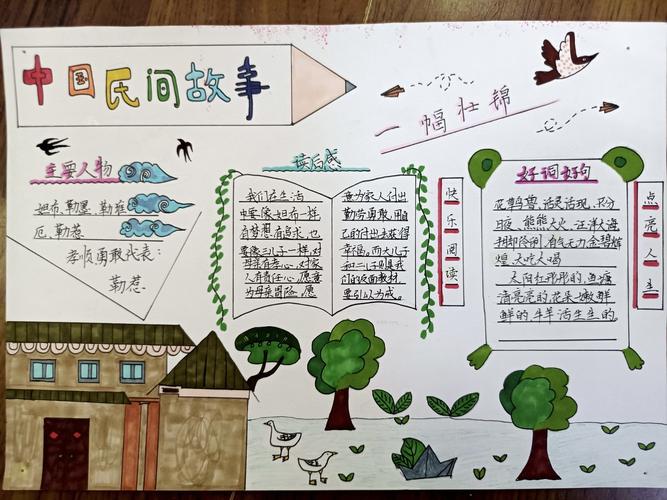 中国民间故事
一幅壮锦
主要人物
妲布,勒墨,勒堆
厄,勒惹
孝顺勇敢代表:
勒惹
读后感
我们在生活
中要像妲布一样
有梦想,有追求,也
要像三儿子一样,对
母亲有孝心,对家
人有责任心,愿意
为母亲冒险,愿
意为家人付出
勤劳勇敢,用自
己的付出去获得
幸福。而大儿子
和二儿子则是我
们的反面教材,
要引以为戒。
快乐阅读
好词好句
日夜、熊熊大火、汪洋大海
有气无力、金碧辉
煌、大吃大喝
太阳红彤彤的,鱼塘
清亮亮的,花朵一嫩鲜
鲜的,牛羊活生生的。
点亮人生